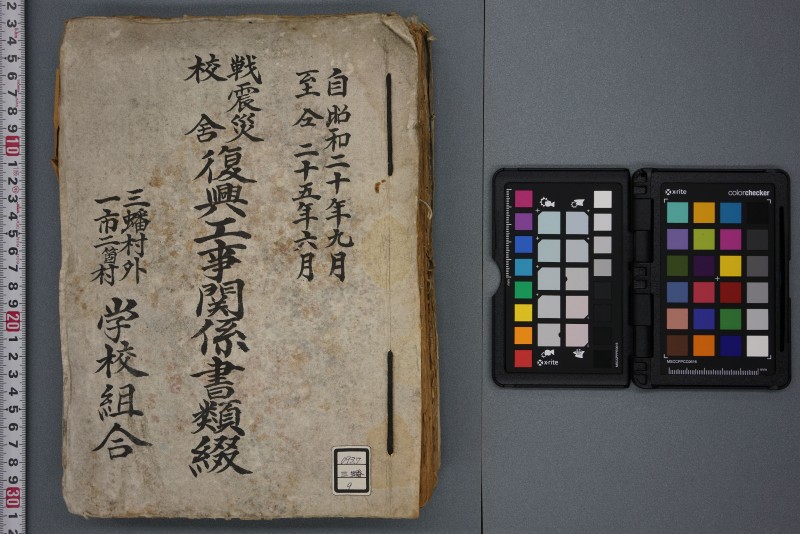 自昭和二十年九月
至仝二十五年六月
戦震災
校舎
復興工事関係書類綴
三蟠村外
一市二箇村
学校組合
三蟠
9
x-rite
x-rite
colorchecker